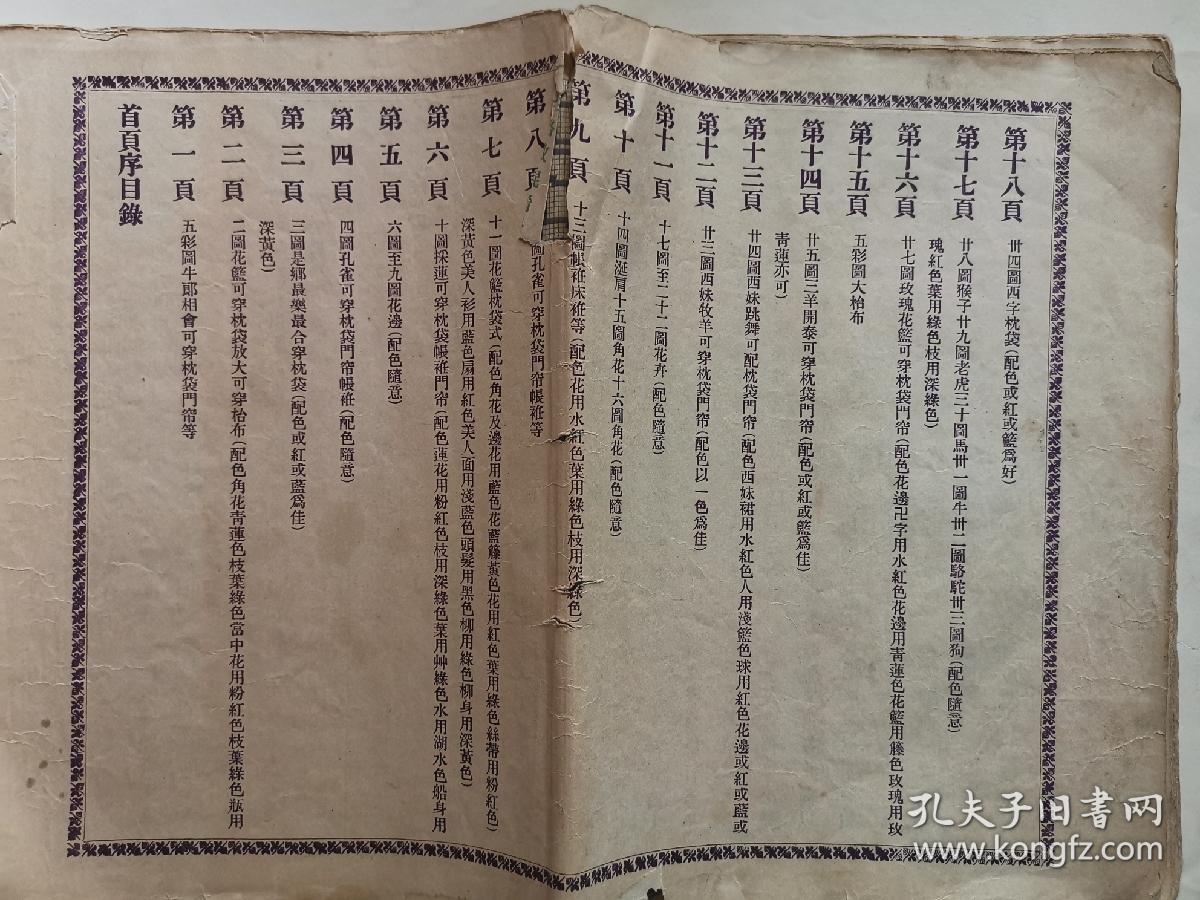 首頁序目錄
第一頁 五彩圖牛郎相會可穿枕袋門帘等
第二頁 二圖花籃可穿枕袋放大可穿枱布(配色角花靑蓮色枝葉綠色當中花用粉紅色枝葉綠色瓶用
深黃色)
第三頁 三圖是鄉最樂最合穿枕袋(配色或紅或藍爲佳)
第四頁 四圖孔雀可穿枕袋門帘帳袵(配色隨意)
第五頁 六圖至九圖花邊(配色隨意)
第六頁 十圖採蓮可穿枕袋帳袵門帘(配色蓮花用粉紅色枝用深綠色葉用艸綠色水用湖水色船身用
深黃色美人衫用藍色扇用紅色美人面用淺藍色頭髮用黑色柳用綠色柳身用深黃色)
第七頁 十一圖花籃枕袋式(配色角花及邊花用藍色花藍籐黃色花用紅色葉用綠色絲帶用粉紅色)
第八頁 圖孔雀可穿枕袋門帘帳袵等
第九頁 十三圖帳袵床袵等(配色花用水紅色葉用綠色枝用深綠色)
第十頁 十四圖涎肩十五圖角花十六圖角花(配色隨意)
第十一頁 十七圖至二十二圖花卉(配色隨意)
第十二頁 廿三圖西妹牧羊可穿枕袋門帘(配色以一色爲佳)
第十三頁 廿四圖西妹跳舞可配枕袋門帘(配色西妹裙用水紅色人用淺籃色球用紅色花邊或紅或藍或
靑蓮亦可)
第十四頁 廿五圖三羊開泰可穿枕袋門帘(配色或紅或籃爲佳)
第十五頁 五彩圖大枱布
第十六頁 廿七圖玫瑰花籃可穿枕袋門帘(配色花邊卍字用水紅色花邊用靑蓮色花籃用籐色玫瑰用玫
瑰紅色葉用綠色枝用深綠色)
第十七頁 廿八圖猴子廿九圖老虎三十圖馬卅一圖牛卅二圖駱駝卅三圖狗(配色隨意)
第十八頁 卅四圖西字枕袋(配色或紅或籃爲好)
孔夫子旧書网
www.kongfz.com